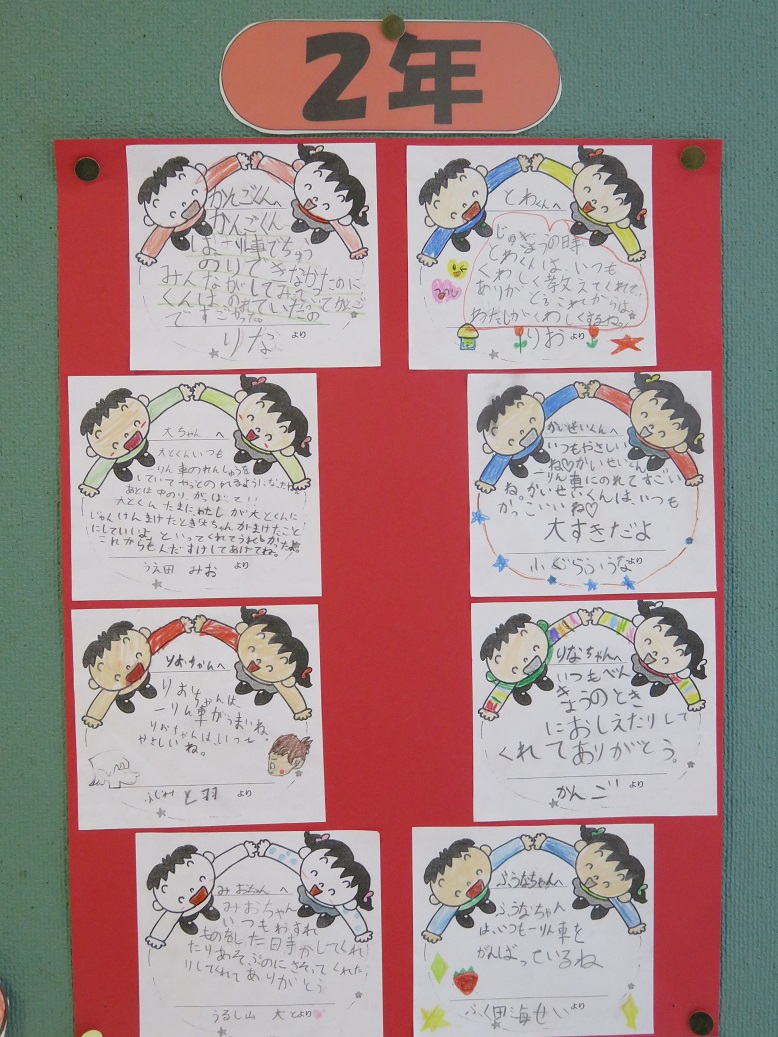 2年
かんごくんへ
かんごくん
は、一りん車でちゅう
のりできなかったのに
みんながしてみて
くんは、のれていた
ですごかった。
りな より
とわくんへ
じゅぎょうの時
とわくんは、いつも
くわしく教えてくれて、
ありがとう。これからは、
わたしがくわしくするね。
りお より
大ちゃん へ
大とくんいつも
一りん車のれんしゅうを
していてやっとのれるようになったね。
あとは中のりがんばってい
大とくんたまにわたしが大とくんに
じゃんけんまけたとき大ちゃんがまけたこと
にしていいよといってくれてうれしかったよ。
これからもみんなだすけしてあげてね。
うえ田 みお より
かいせいくんへ
いつもやさしい
ね♡かいせいくん
一りん車にのれてすごい
ね。かいせいくんは、いつも
かっこいいね♡
大すきだよ
ふうな より
りおちゃんへ
りおちゃんは、
一りん車がうまいね。
りおちゃんは、いつも
やさしいね。
と羽 より
りなちゃんへ
いつもべん
きょうのとき
におしえたりして
くれてありがとう。
かんご より
みおちゃん へ
みおちゃん
いつもわすれ
ものをした日時かしてくれ
たりあそぶのにさそってくれた
りしてくれてありがとう
うるし山 大とより
ふうなちゃんへ
ふうなちゃん
は、いつも一りん車を
がんばっているね
ふく田海せい より